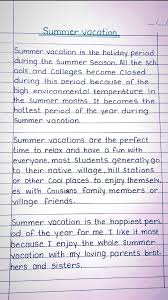 Summer vacation
Summer vacation is the holiday period
during the Summer Season. All the sch
ools and Colleges become Closed
during this period because of the
high environmental temperature In
the summer months It becomes the
hottest period of the year during
Summer vacation.
Summer vacations are the perfect
time to relax and have a fun with
everyone. most Students generally go
to their native village, hill stations
or other Cool places to enjoy themselv
es with Cousians family members or
village friends.
Summer vacation is the happiest peri
od of the year for me. I like it most
because I enjoy the whole Summer
vacation with my loving parents brot
hers and sisters.